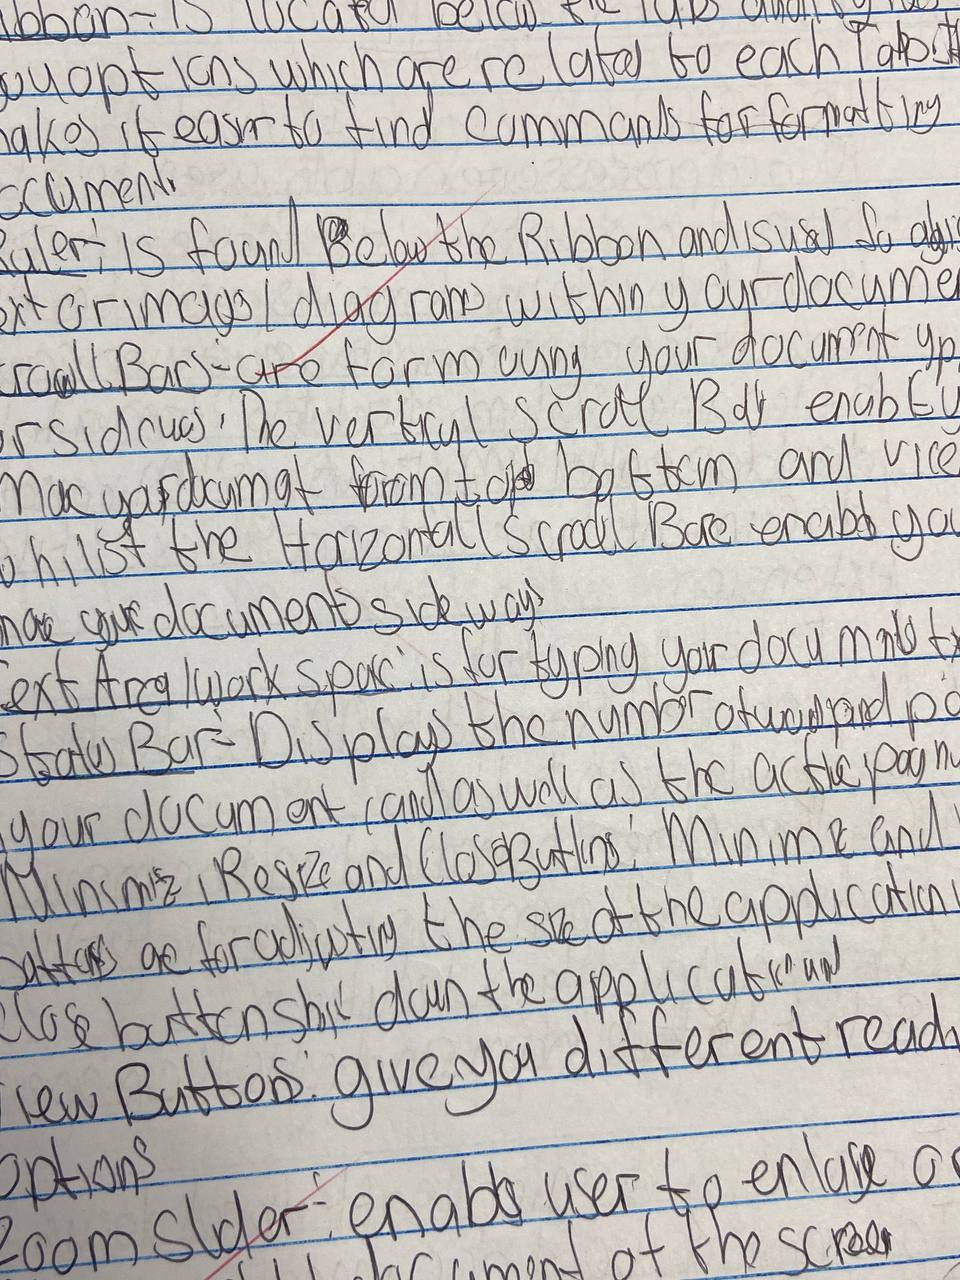 ibbon- is located below the Tabs and
you options which are related to each Tabs It
makes it easier to find commands for formatting
ocument.
Ruler: is found Below the Ribbon and is used to
ext or images / diagrams within your docume
croll Bars- are for moving your document up
or sideways. The vertical scroll Bar enable
move your document from top bottom and vice
whilst the Horizontal Scroll Bare enabls you
move your documents sideways
Text Area / work space: is for typing your documents
Status Bar= Displays the number of word and pa
your document (and) as well as the active page nu
Minimiz, Resize and Close Buttons: Minimiz and
buttons are for adjusting the size of the application
close button shut down the application
iew Buttons: give you different readi
options
Zoom Slider: enabls user to enlarge or
document of the screen